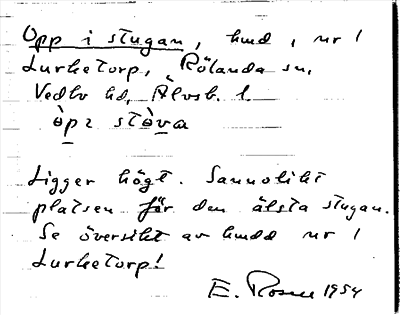 Opp i stugan, hmd, nr 1
Lurketorp, Rölanda sn,
Vedbo hd, Älvsb. l.
òpɪ stòva
Ligger högt. Sannolikt
platsen för den älsta stugan.
Se översikt av hmdd nr 1
Lurketorp!
E. Rosell 1954